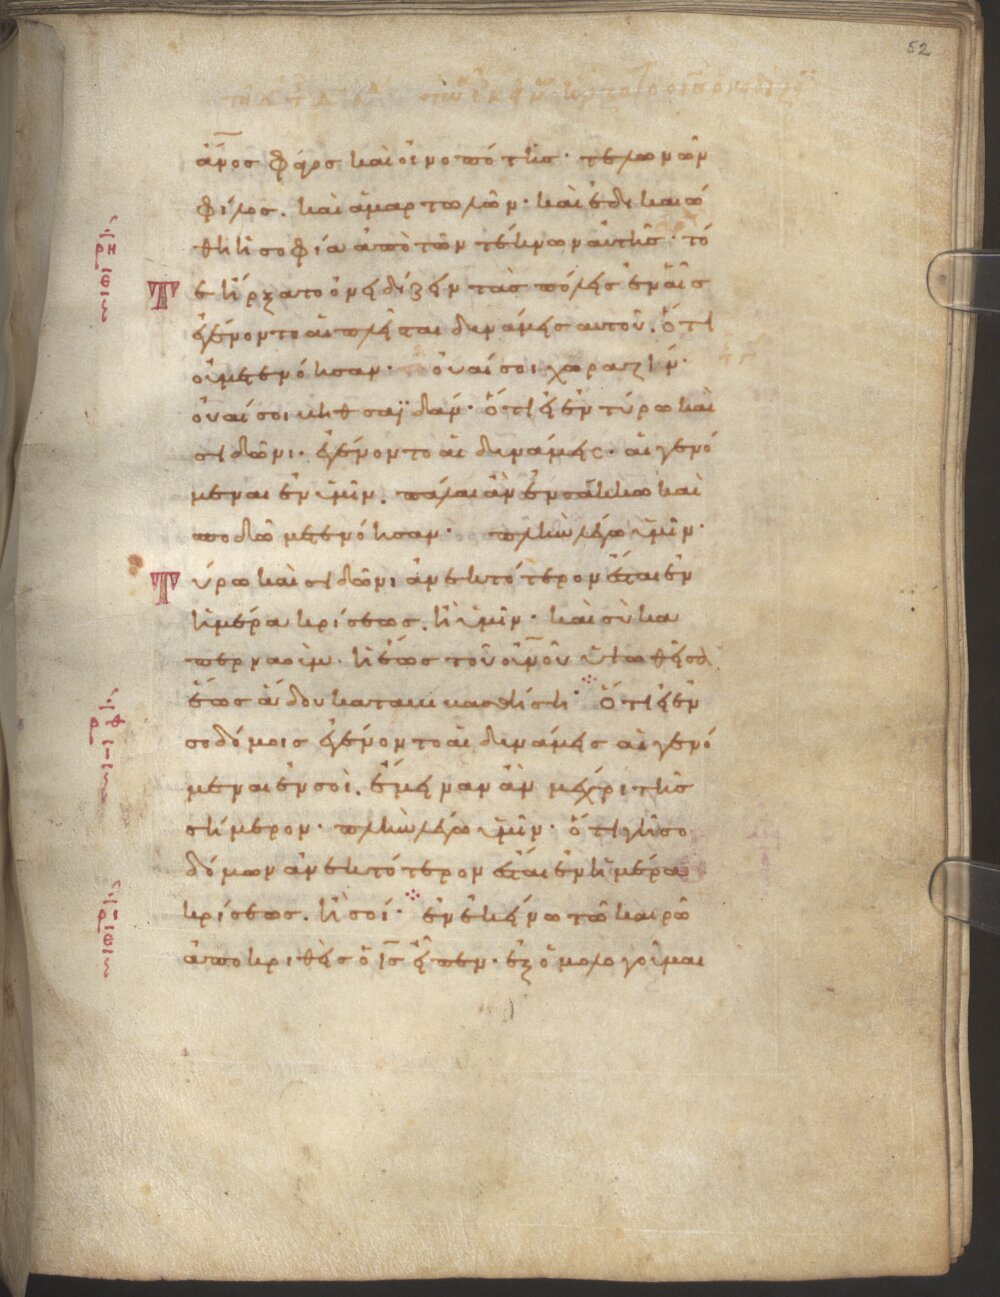 52
ἄνος φάγος καὶ οἰνοπότης· τελωνῶν
φίλος. καὶ ἁμαρτωλῶν· καὶ ἐδικαιώ
θη ἡ σοφία ἀπὸ τῶν τέκνων αὐτῆς· τό
Τ
τε ἤρξατο ὀνειδίζειν τὰς πόλεις ἐν αἷς
ἐγένοντο αἱ πλεῖσται δυνάμεις αὐτοῦ. ὅτι
οὐ μετενόησαν· οὐαί σοι χωραζίν·
οὐαί σοι βηθσαϊδάν· ὅτι εἰ ἐν τύρω καὶ
σιδῶνι· ἐγένοντο αἱ δυνάμεις· αἱ γενό
μεναι ἐν ὑμῖν. πάλαι ἂν ἐν σάκκω καὶ
σποδῶ μετενόησαν· πλὴν λέγω ὑμῖν·
Τ
ύρω καὶ σιδῶνι ἀνεκτότερον ἔσται ἐν
ἡμέρα κρίσεως. ἢ ὑμῖν· καὶ σὺ κα
περναούμ· ἡ ἕως τοῦ οὐνοῦ ὑψωθεῖσα
ἕως ἅδου καταβιβασθήση· ὅτι εἰ ἐν
σοδόμοις ἐγένοντο αἱ δυνάμεις αἱ γενό
μεναι ἐν σοὶ. ἔμειναν ἂν μέχρι τῆς
σήμερον· πλὴν λέγω ὑμῖν· ὅτι γῆ σο
δόμων ἀνεκτότερον ἔσται ἐν ἡμέρα
κρίσεως. ἢ σοί· ἐν ἐκείνω τῶ καιρῶ
ἀποκριθεὶς ὁ ις εἶπεν· ἐξομολογοῦμαι